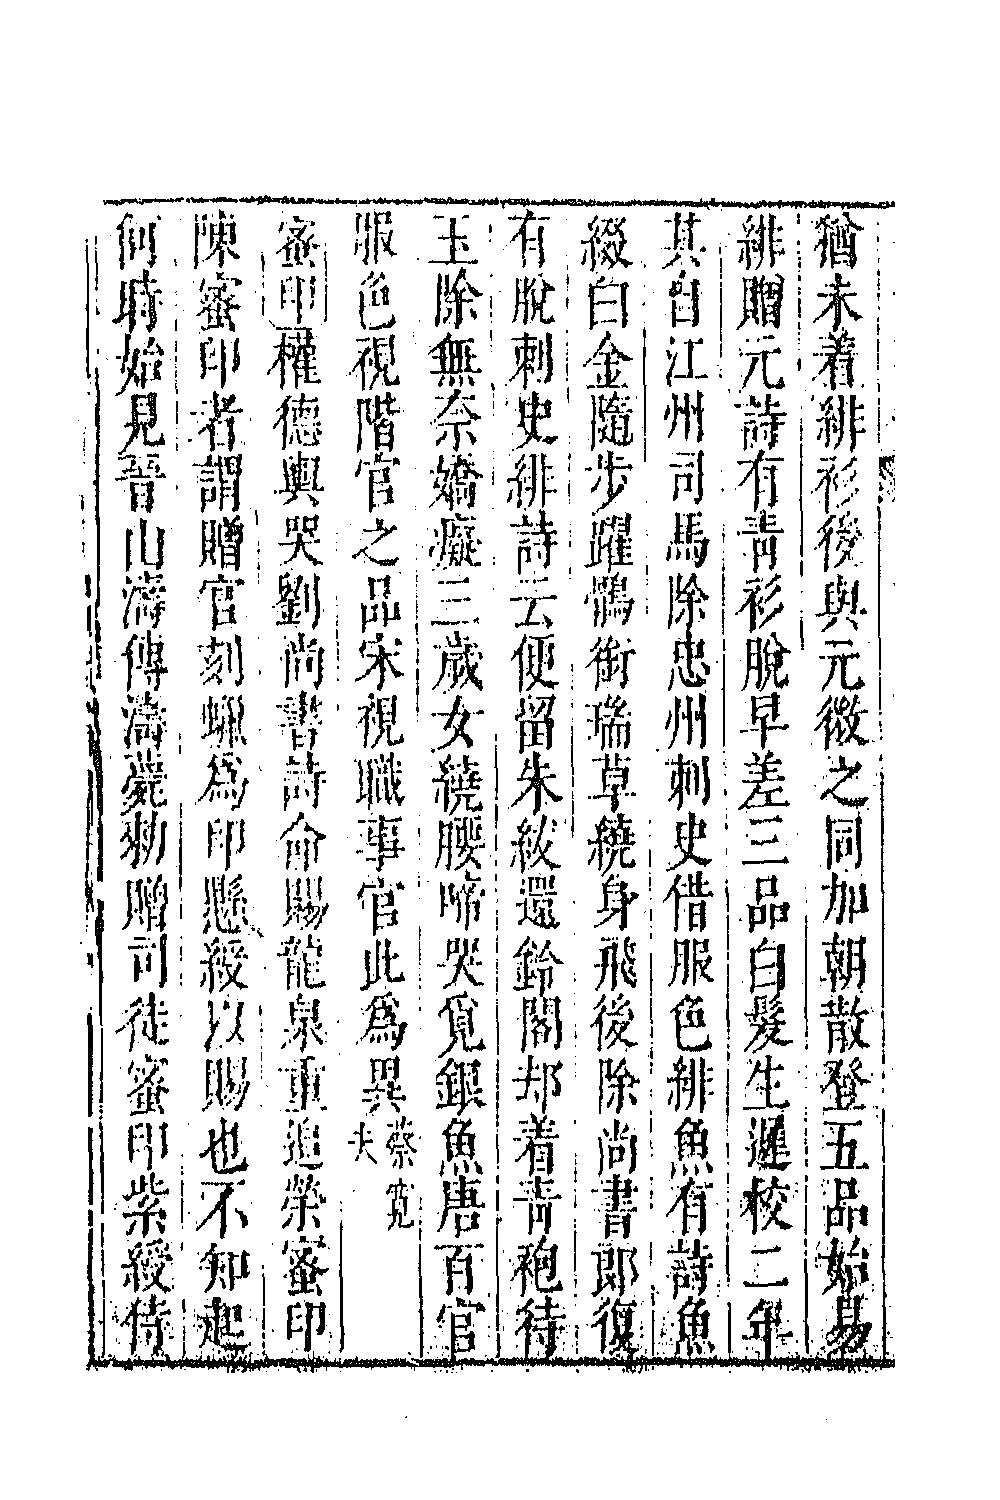 猶未着緋衫後與元微之同加朝散登五品始易
緋贈元詩有青衫脫早差三品白髮生遲校二年
其自江州司馬除忠州刺史借服色緋魚有詩魚
綴白金隨步躍鶻銜瑞草繞身飛後除尚書郎復
有脫刺史緋詩云便留朱紱還鈴閣却着青袍待
玉除無奈嬌癡三歲女繞腰啼哭覓銀魚唐百官
服色視階官之品宋視職事官此爲異蔡寛夫
蜜印權德輿哭劉尚書詩命賜龍泉重追榮蜜印
陳蜜印者謂贈官刻蠟爲印懸綬以賜也不知起
何時始見晉山濤傳濤薨勑贈司徒蜜印紫綬侍